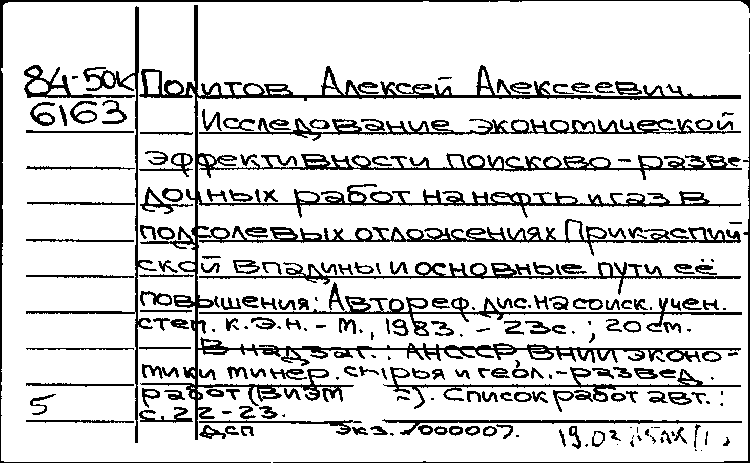 84-50К Политов, Алексей Алексеевич.
6163 Исследование экономической
эффективности поисково-разве-
дочных работ на нефть и газ в
подсолевых отложениях Прикаспий-
ской впадины и основные пути её
повышения: Автореф. дис. на соиск. учен.
степ. к.э.н. - М., 1983. - 23 с.; 20 см.
В надзаг.: АН СССР, ВНИИ эконо-
мики минер. сырья и геол.-развед.
работ (ВИЭМС). Список работ авт.:
5 с. 22-23.
ДСП Экз. №000007. 19.03